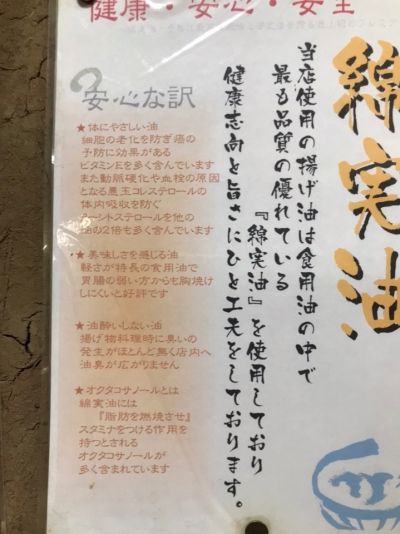 健康・安心・安全
綿実油
当店使用の揚げ油は食用油の中で
最も品質の優れている
『綿実油』を使用しており
健康志向と旨さにひと工夫をしております。
安心な訳
★体にやさしい油
細胞の老化を防ぎ癌の
予防に効果がある
ビタミンEを多く含んでいます
また動脈硬化や血栓の原因
となる悪玉コレステロールの
体内吸収を防ぐ
シトステロールを他の
油の2倍も多く含んでいます
★美味しさを感じる油
軽さが特長の食用油で
胃腸の弱い方からも胸焼け
しにくいと好評です
★油酔いしない油
揚げ物料理時に臭いの
発生がほとんど無く店内へ
油臭が広がりません
★オクタコサノールとは
綿実油には
『脂肪を燃焼させ』
スタミナをつける作用を
持つとされる
オクタコサノールが
多く含まれています